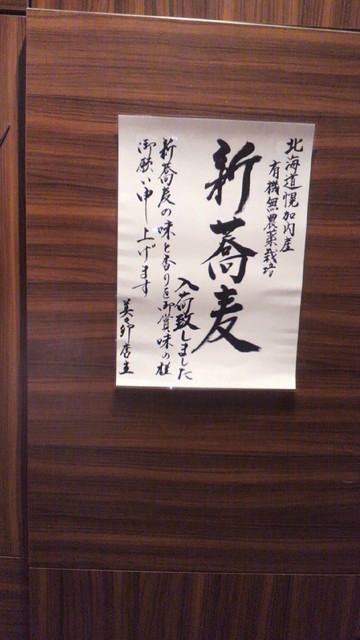 北海道幌加内産
有機無農薬栽培
新蕎麦
入荷致しました
新蕎麦の味と香りを御賞味の程
御願い申し上げます
店主